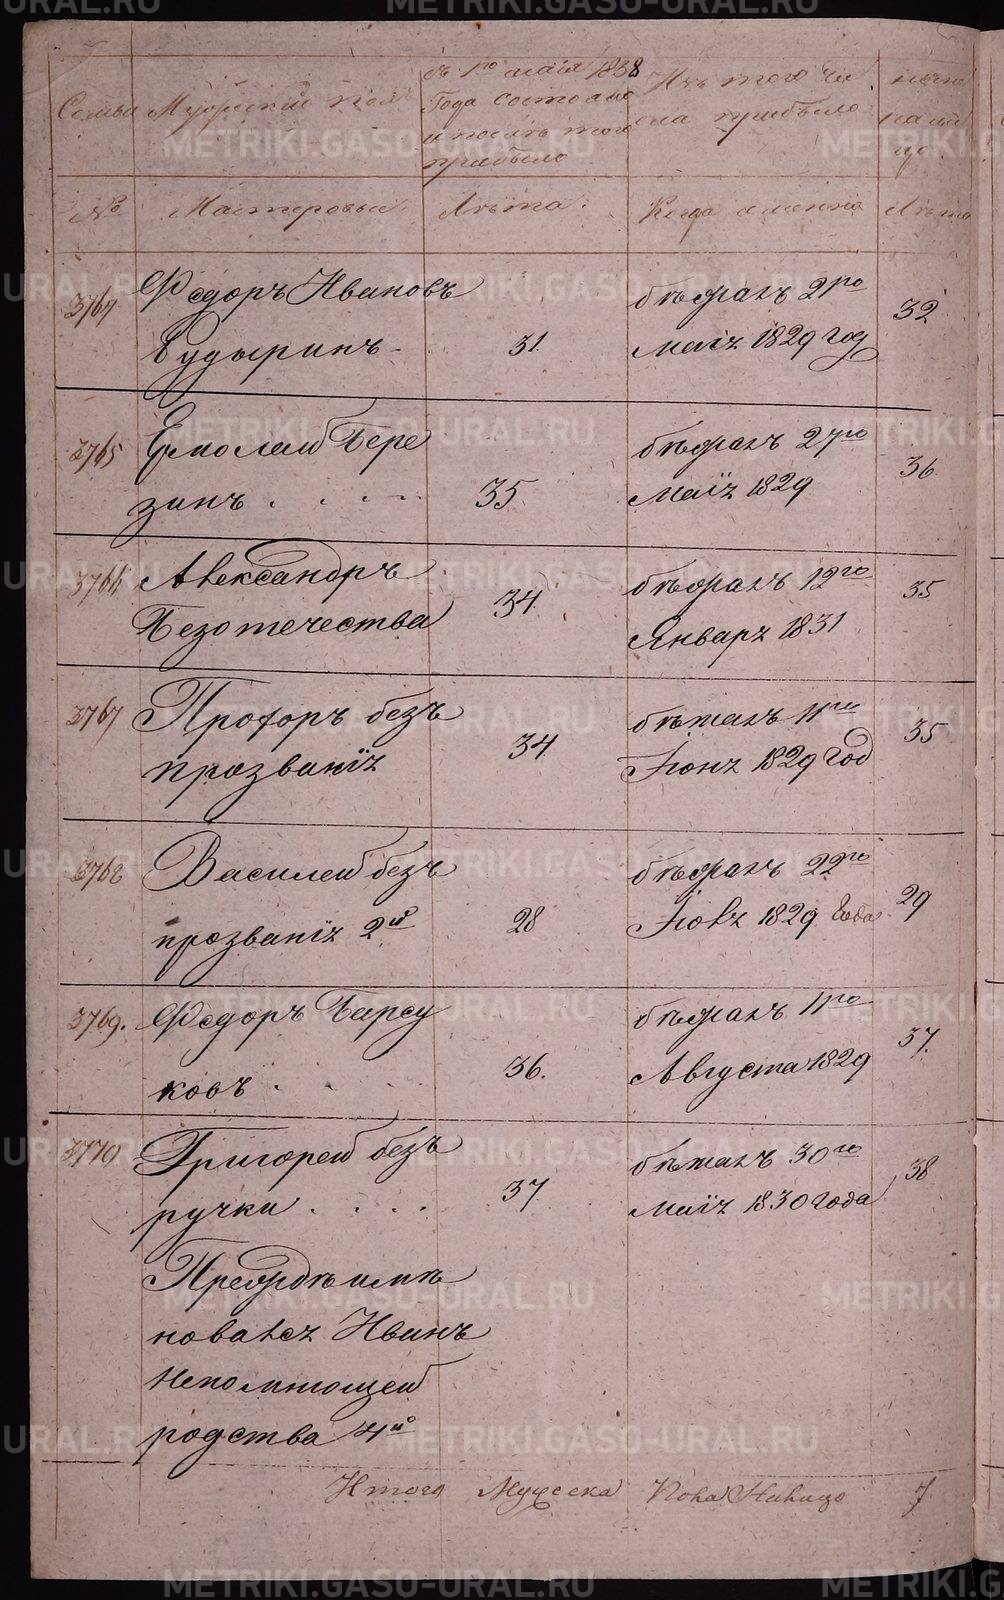 Семьи
Мужескій полъ
Съ 1го мая 1838
Года состояло
и послѣ того
прибыло
Изъ того чи
сла прибыло
нали
цо
№
Мастеровые
Лѣта.
Когда именно
Лѣта
3764
Федоръ Ивановъ
Будыринъ
31.
бѣжалъ 2го
маія 1829 год
32
3765
Ермолай Бере
зинъ . . . .
35.
бѣжалъ 27го
маія 1829
36
3766
Александръ
Безотечества
34.
бѣжалъ 12го
Января 1831
35
3767
Прохоръ безъ
прозванія
34
бѣжалъ 11го
Іюня 1829 год
35
3768
Василей безъ
прозванія 2й
28
бѣжалъ 22го
Іюля 1829 года
29
3769.
Федоръ Барсу
ковъ . . . .
36.
бѣжалъ 11го
Августа 1829
37.
3770
Григорей безъ
ручки . . . .
37
бѣжалъ 30го
маія 1830 года
38
Прежде имѣ
новался Иванъ
непомнющей
родства 4й
Итого Мужеска Пола Налицо 7
METRIKI.GASO-URAL.RU